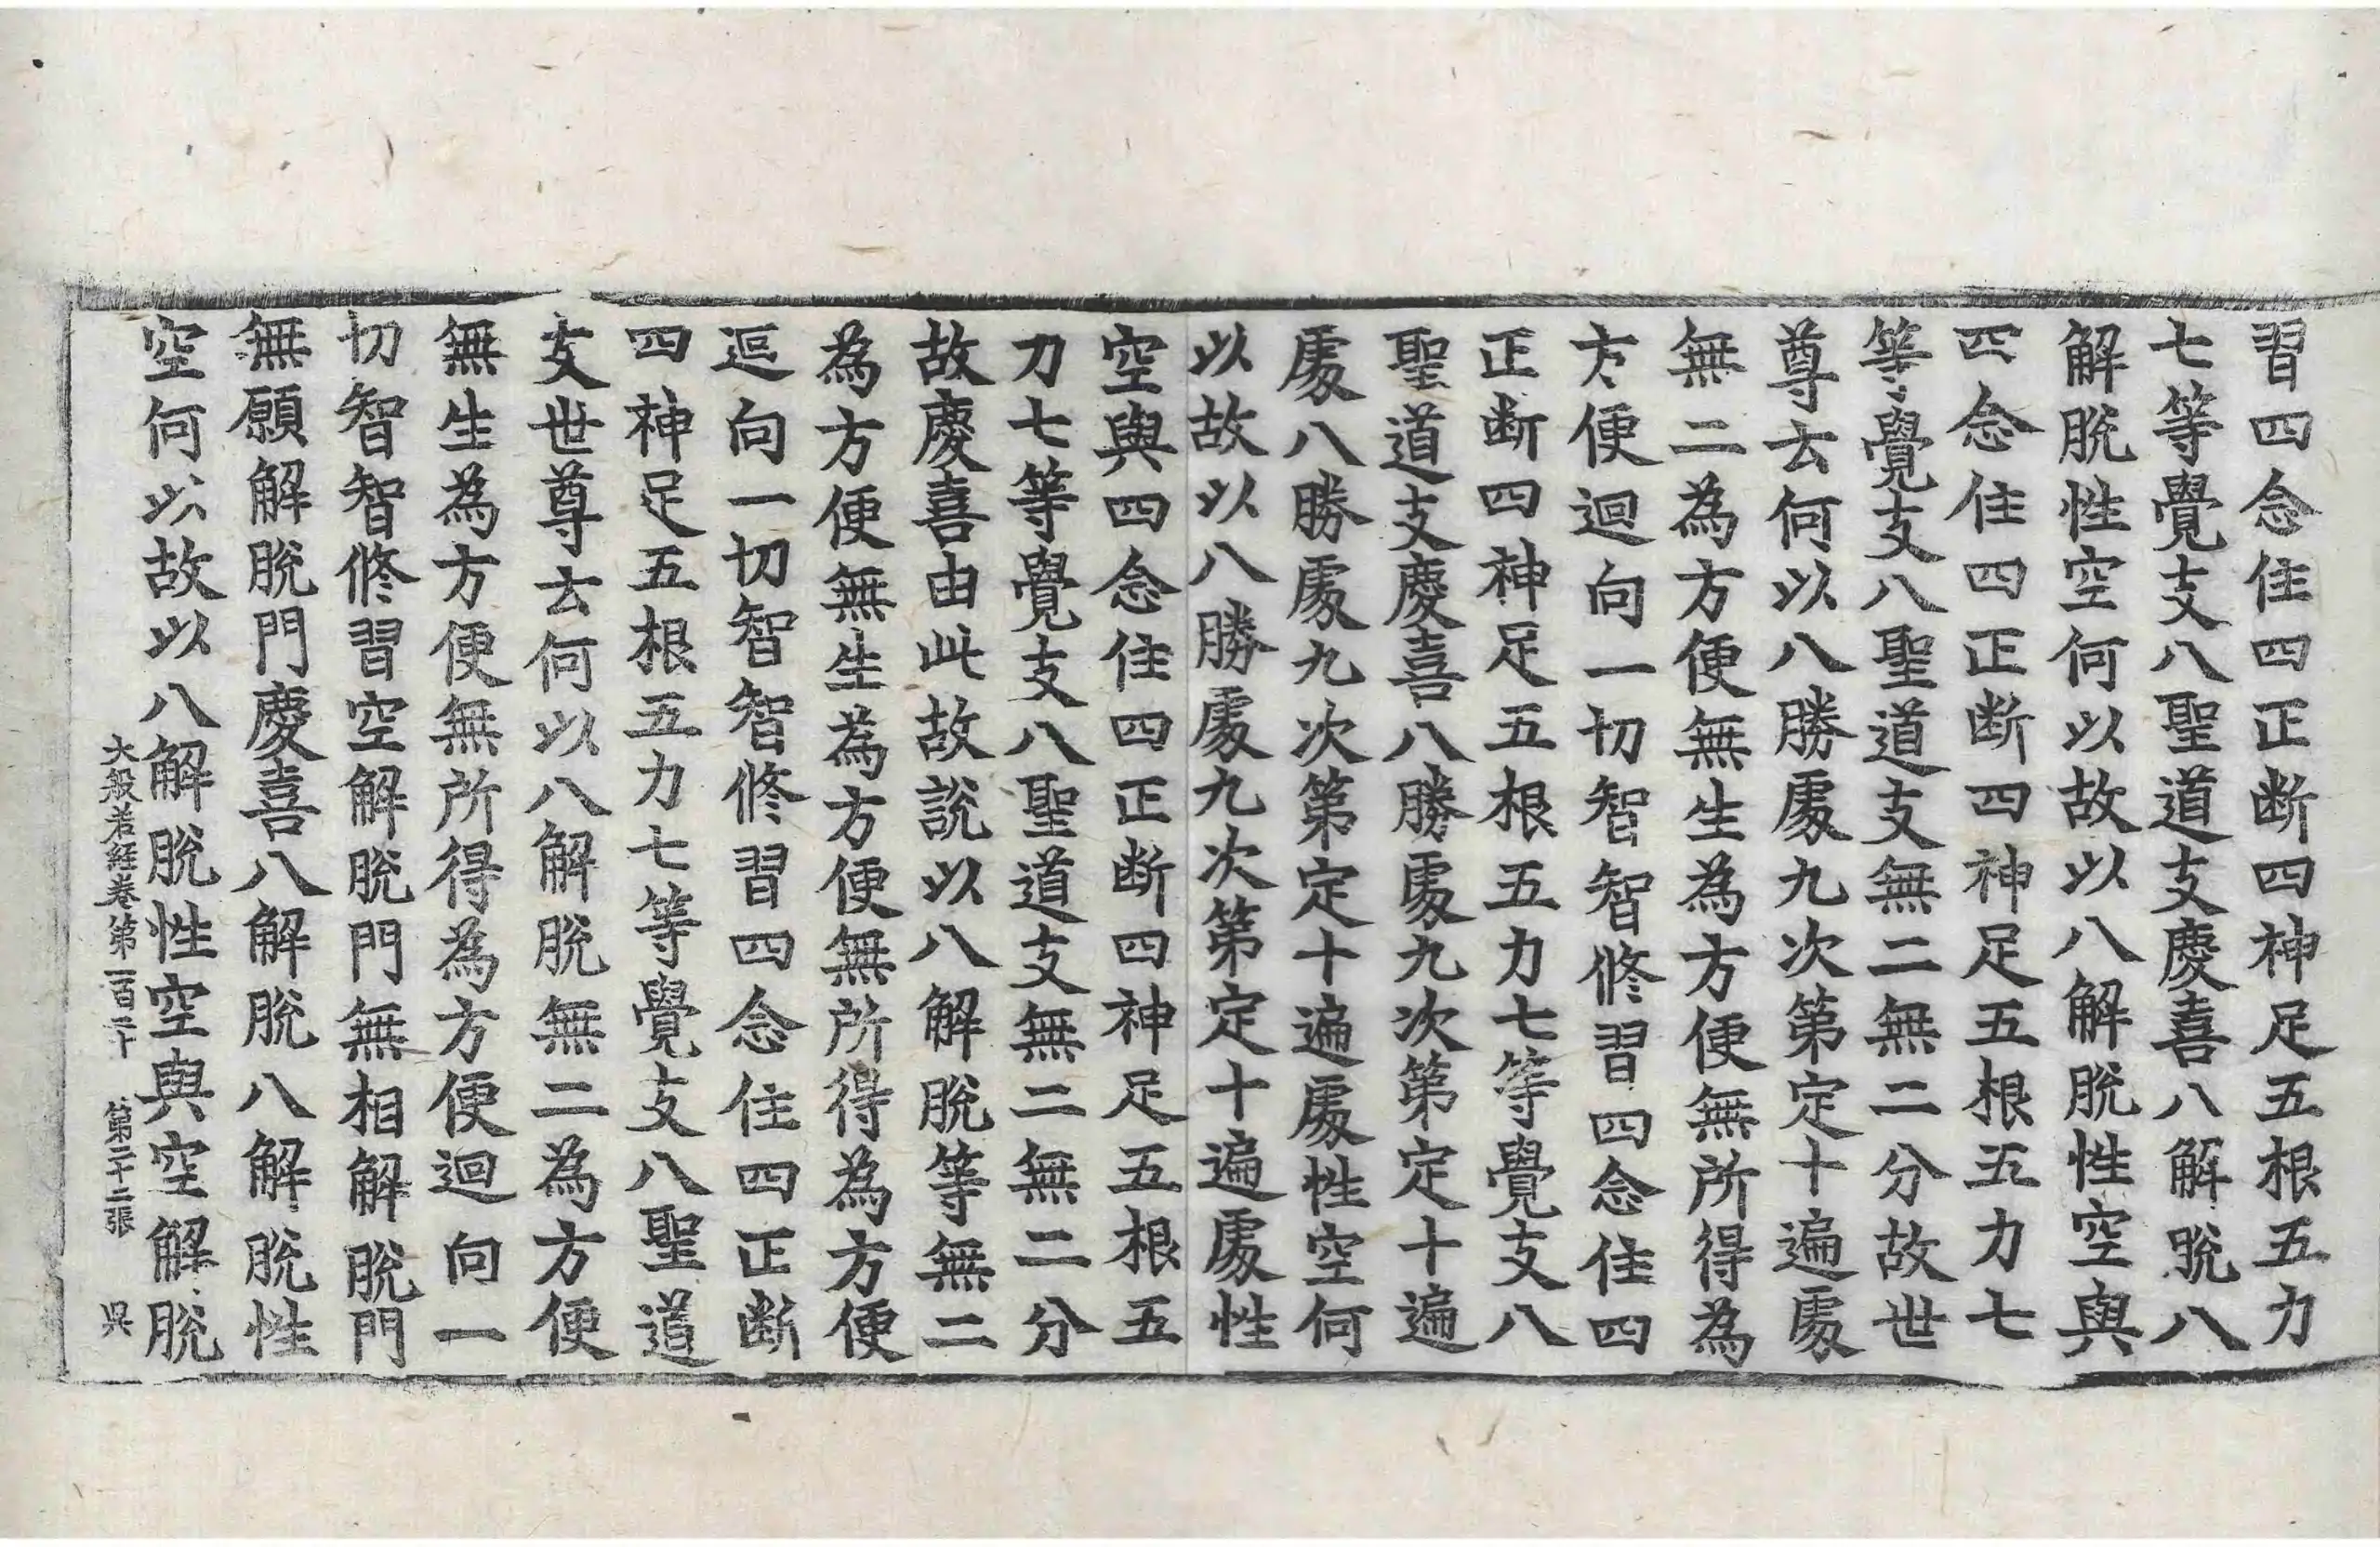 習四念住四正断四神足五根五力
七等覺支八聖道支慶喜八解脫八
解脫性空何以故以八解脫性空與
四念住四正断四神足五根五力七
等覺支八聖道支無二無二分故世
尊云何以八勝處九次第定十遍處
無二為方便無生為方便無所得為
方便迴向一切智智修習四念住四
正断四神足五根五力七等覺支八
聖道支慶喜八勝處九次第定十遍
處八勝處九次第定十遍處性空何
以故以八勝處九次第定十遍處性
空與四念住四正断四神足五根五
力七等覺支八聖道支無二無二分
故慶喜由此故說以八解脫等無二
為方便無生為方便無所得為方便
迴向一切智智修習四念住四正断
四神足五根五力七等覺支八聖道
支世尊云何以八解脫無二為方便
無生為方便無所得為方便迴向一
切智智修習空解脫門無相解脫門
無願解脫門慶喜八解脫八解脫性
空何以故以八解脫性空與空解脫
大般若經卷第一百二十 第二十二張 吳